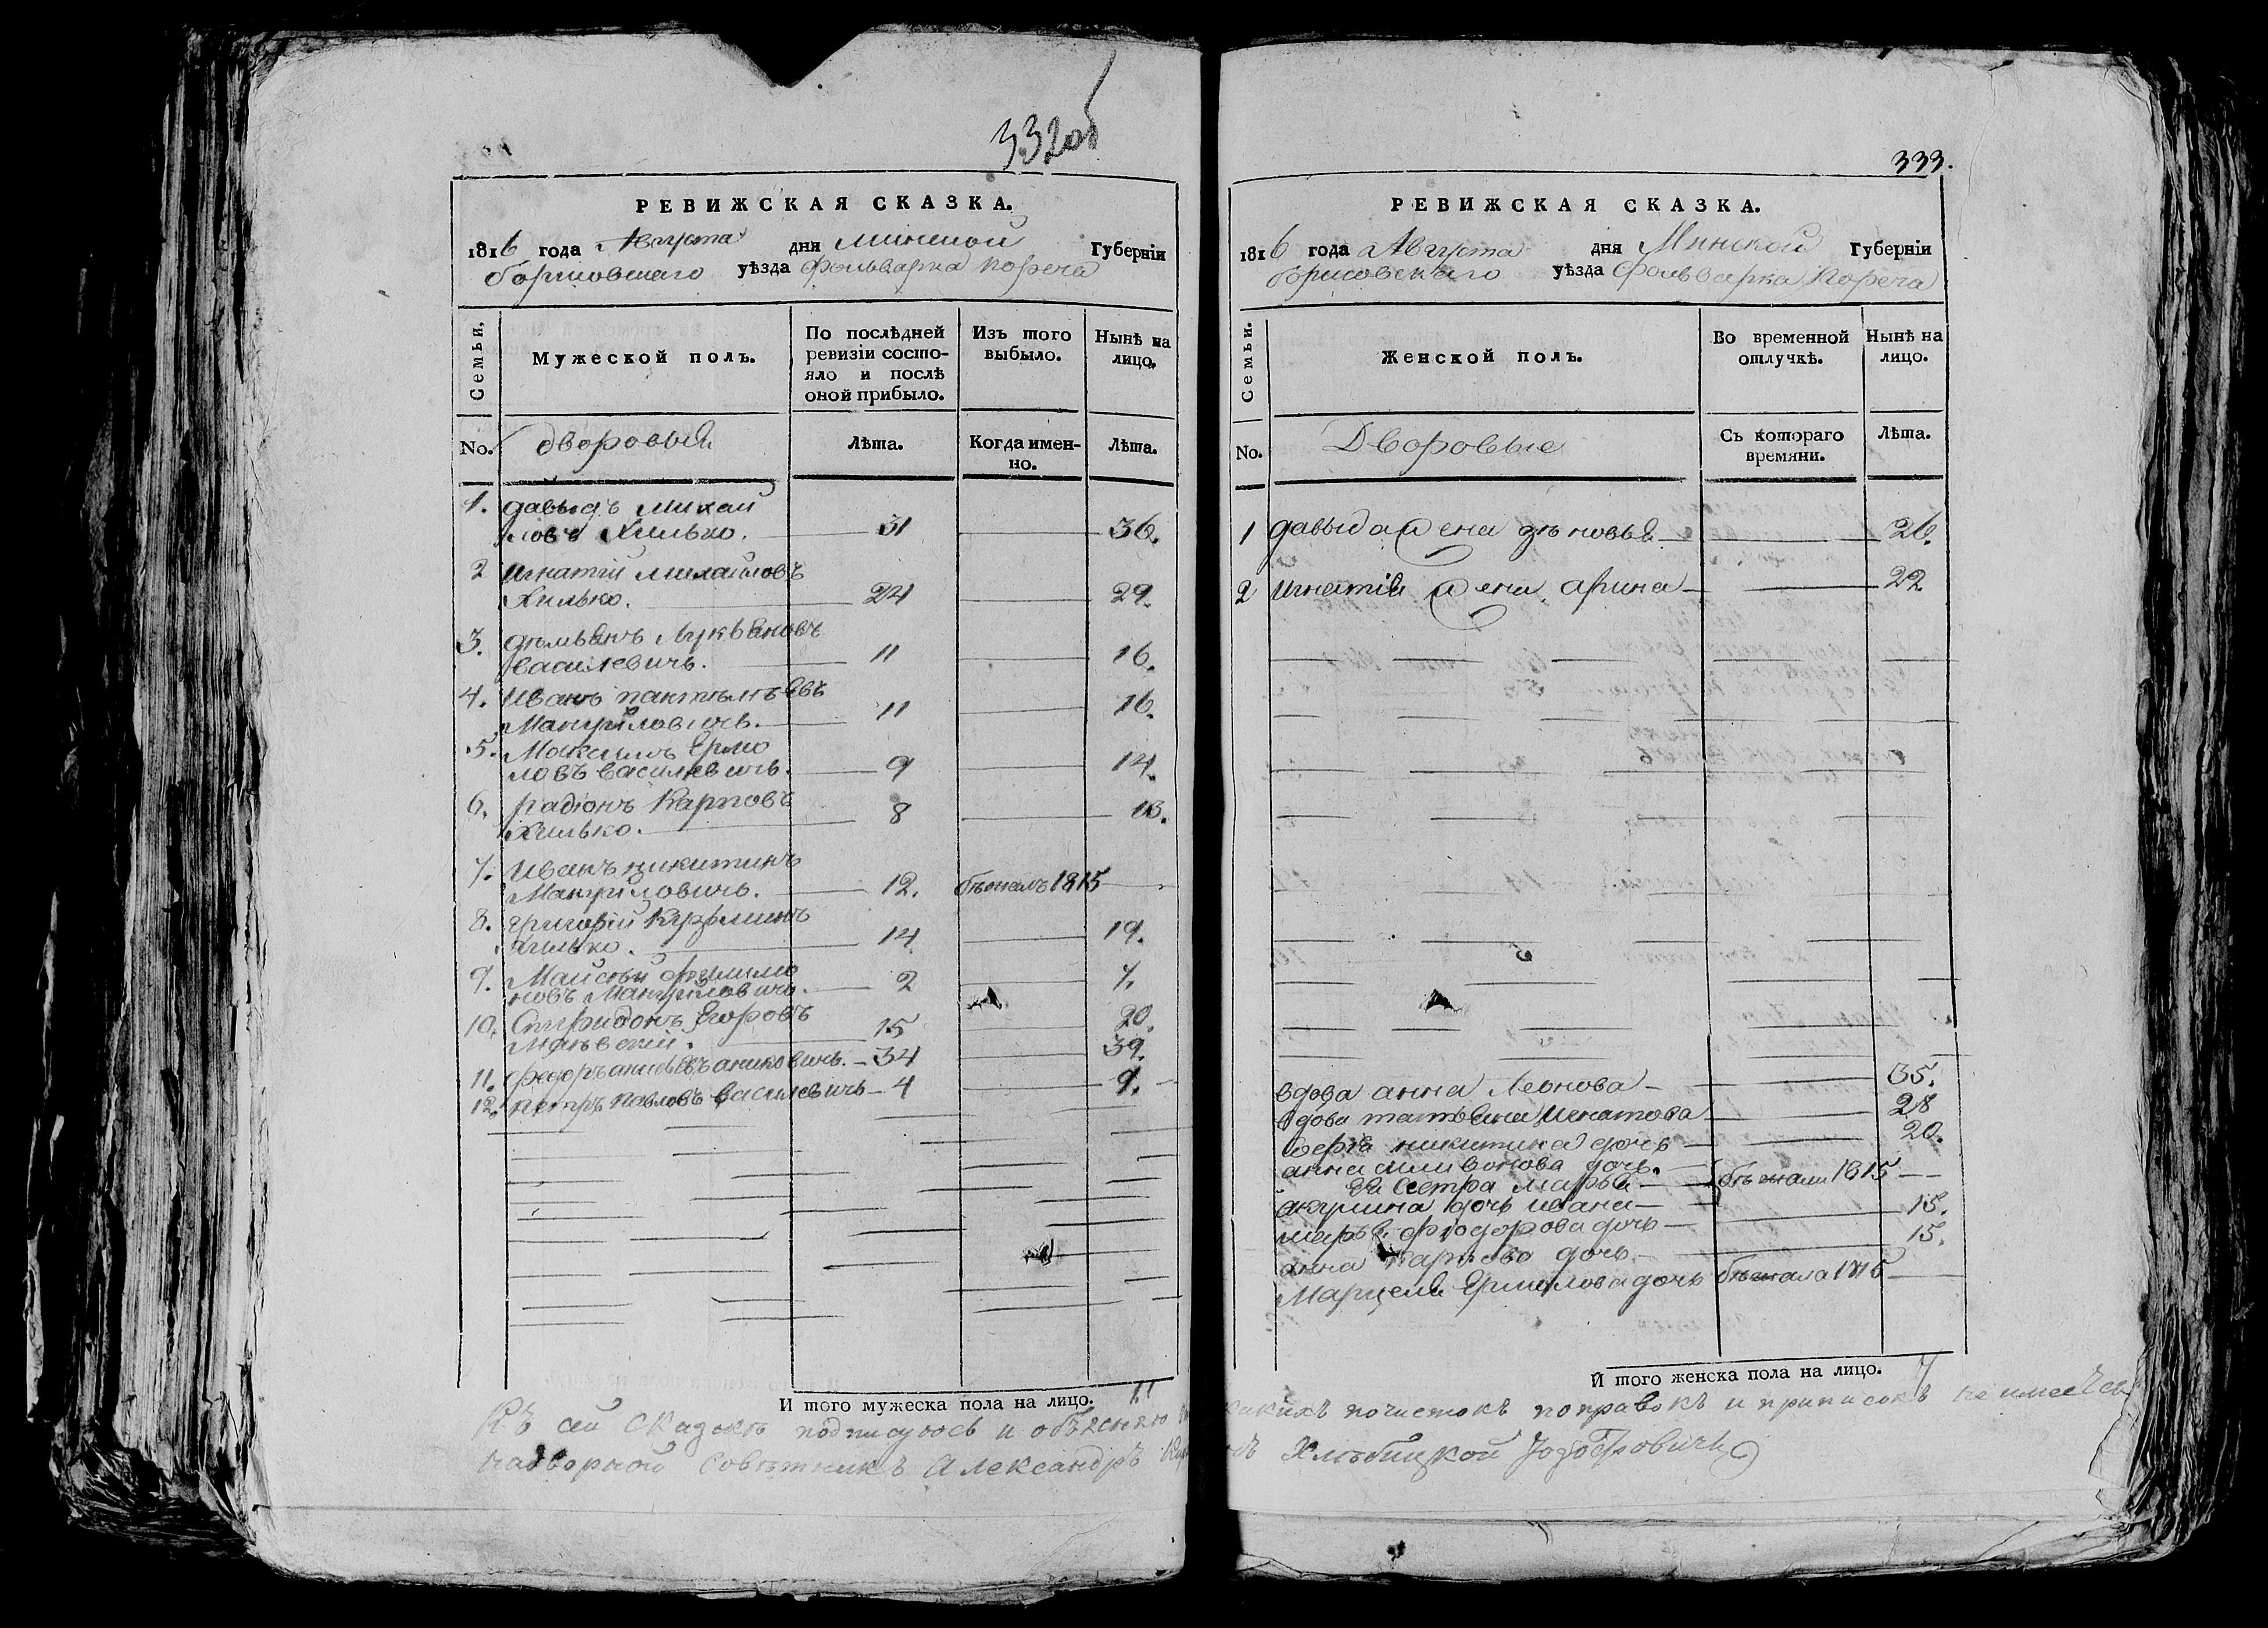 332об
РЕВИЖСКАЯ СКАЗКА.
1816 года Августа дня Минской Губерніи
борисовскаго уѣзда Фольварка Пореча
Семьи.
Мужеской полъ.
По послѣдней ревизіи состо-
яло и послѣ
оной прибыло.
Изъ того
выбыло.
Нынѣ на
лицо.
No. дворовыя Лѣта. Когда имен-
но. Лѣта.
1. давыдъ Михай
ловъ Хилько. 31 36.
2 игнатій михайловъ
Хилько. 24 29.
3. демьянъ Лукьяновъ
василевичъ. 11 16.
4. Иванъ пантелеевъ
11 16.
5. Максимъ Ермо
ловъ василевичъ. 9 14.
6. радіонъ Карповъ
Хилько. 8 13.
7. Иванъ никитинъ
12. бежалъ 1815
8. григорій Кузьминъ
хилько. 14 19.
9. Майсей филимо
новъ 2 7.
10. Спиридонъ Егоровъ
15 20.
11. федоръ 34 39.
12. петръ павловъ василевичъ 4 9.
И того мужеска пола на лицо. 11
Къ сей сказкѣ подписуюсь и объясняю
надворной Советникъ Александръ
333.
РЕВИЖСКАЯ СКАЗКА.
1816 года Августа дня Минской Губерніи
борисовскаго уѣзда Фольварка Пореча
Семьи.
Женской полъ.
Во временной
отлучкѣ.
Нынѣ на
лицо.
No. Дворовые Съ котораго
времяни. Лѣта.
1 давыда жена зеновья 26.
2 игнатія жена арина 22
вдова анна Леонова 35.
вдова татьяна Игнатова 28
никитина дочь 20.
анна дочь.
Ея сестра марья бежали 1815
акулина дочь ивана 15.
марья фіодорова дочь 15.
анна карпова дочь
Марцеля Ермолова дочь бежала 1815
И того женска пола на лицо. 7
какихъ почистокъ поправокъ и приписокъ не имеется
Хлѣбицкой Іозофовичъ